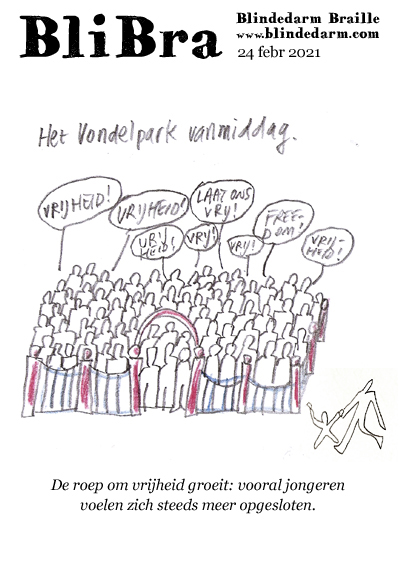 BliBra
Blindedarm Braille
www.blindedarm.com
24 febr 2021
Het Vondelpark vanmiddag.
VRIJHEID!
VRIJHEID!
VRIJ-
HEID!
VRIJ!
LAAT ONS
VRIJ!
VRIJ!
FREE-
DOM!
VRIJ-
HEID!
De roep om vrijheid groeit: vooral jongeren
voelen zich steeds meer opgesloten.